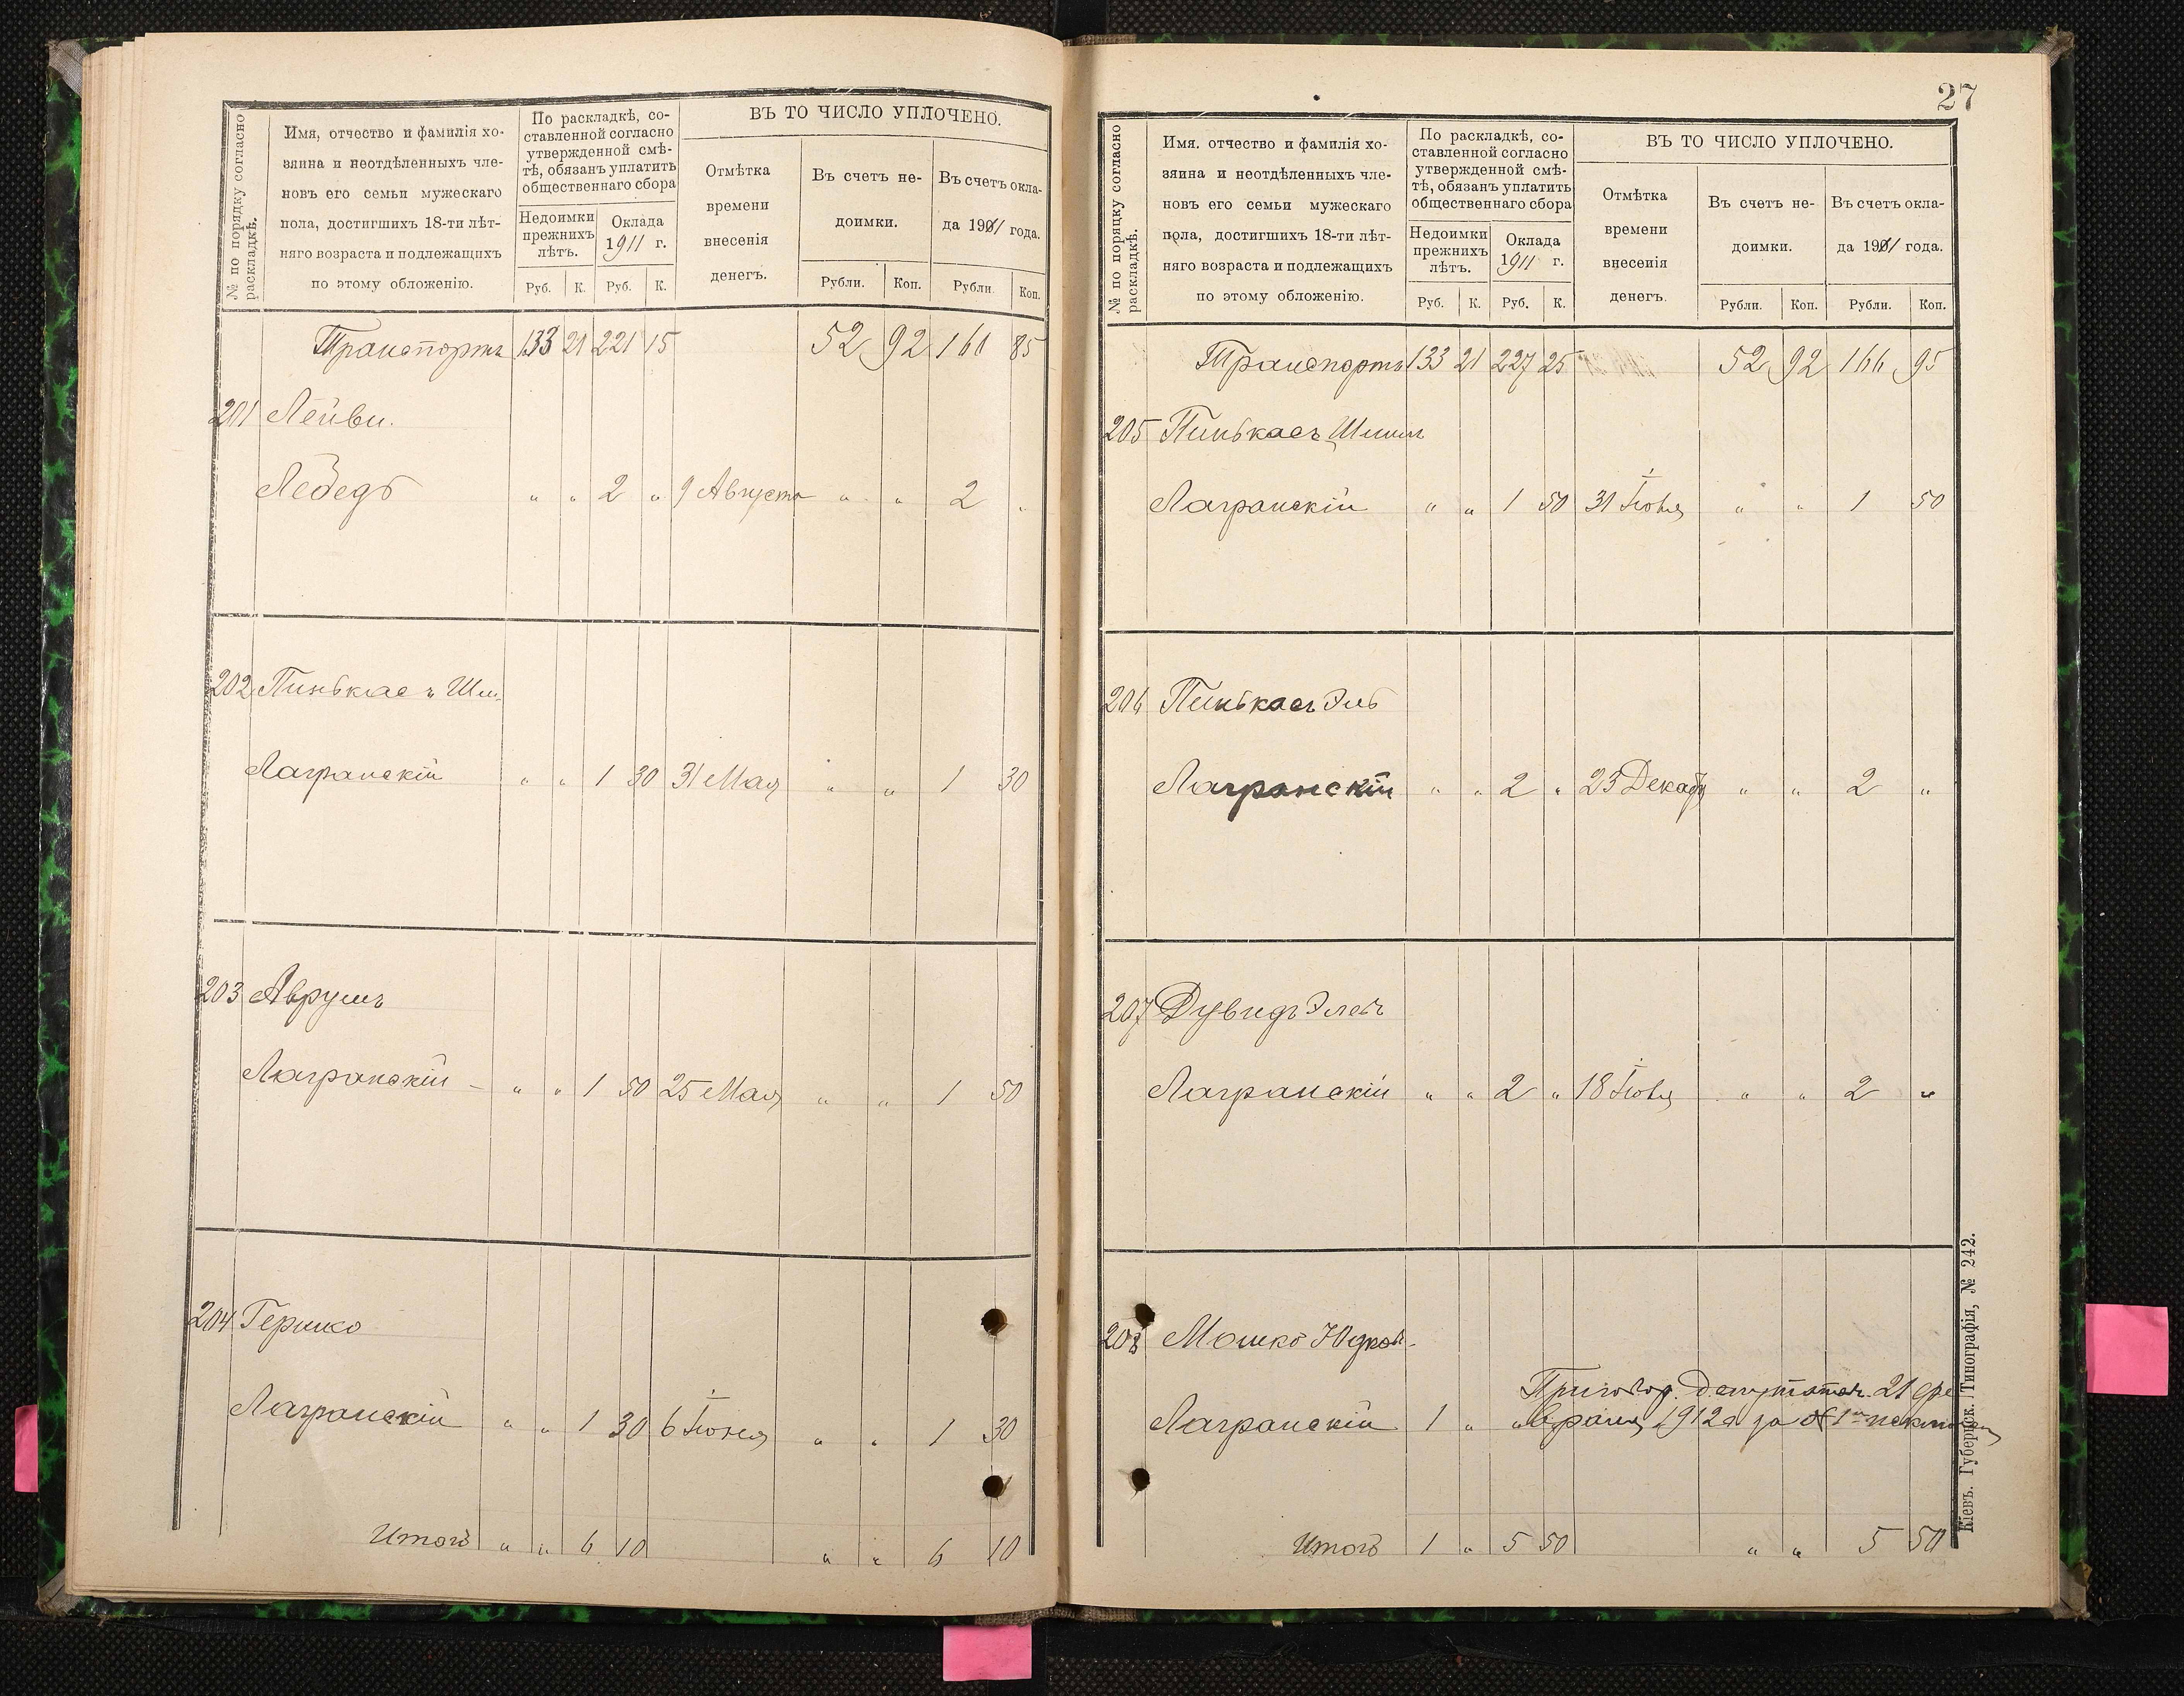 27
№ по порядку согласно раскладкѣ.
Имя, отчество и фамилія хо-
зяина и неотдѣленныхъ чле-
новъ его семьи мужескаго
пола, достигшихъ 18-ти лѣт-
няго возраста и подлежащихъ
по этому обложенію.
По раскладкѣ, со-
ставленной согласно
утвержденной смѣ-
тѣ, обязанъ уплатить
общественнаго сбора
Недоимки прежнихъ лѣтъ.
Оклада 1911 г.
Руб. К. Руб. К.
ВЪ ТО ЧИСЛО УПЛОЧЕНО.
Отмѣтка
времени
внесенія
денегъ.
Въ счетъ не-
доимки.
Въ счетъ окла-
да 1911 года.
Рубли. Коп. Рубли. Коп.
Транспортъ 133 21 221 15 52 92 161 85
201 Лейви.
Лебедь " " 2 " 9 Августа " " 2 "
202 Пинькасъ Шм.
Лагранскій " " 1 30 31 Мая " " 1 30
203 Аврумъ
Лагранскій " " 1 50 25 Мая " " 1 50
204 Гершко
Лагранскій " " 1 30 6 Іюня " " 1 30
Итогъ " " 6 10 " " 6 10
№ по порядку согласно раскладкѣ.
Имя. отчество и фамилія хо-
зяина и неотдѣленныхъ чле-
новъ его семьи мужескаго
пола, достигшихъ 18-ти лѣт-
няго возраста и подлежащихъ
по этому обложенію.
По раскладкѣ, со-
ставленной согласно
утвержденной смѣ-
тѣ, обязанъ уплатить
общественнаго сбора
Недоимки прежнихъ лѣтъ.
Оклада 1911 г.
Руб. К. Руб. К.
ВЪ ТО ЧИСЛО УПЛОЧЕНО.
Отмѣтка
времени
внесенія
денегъ.
Въ счетъ не-
доимки.
Въ счетъ окла-
да 1911 года.
Рубли. Коп. Рубли. Коп.
Транспортъ 133 21 227 25 52 92 166 95
205 Пинькасъ
Лагранскій " " 1 50 31 Іюля " " 1 50
206 Пинькасъ
Лагранскій " " 2 " 23 Декаб " " 2 "
207 Дувидъ
Лагранскій " " 2 " 18 Іюля " " 2 "
208 Мошко Юдков.
Приговор. Депутатов. 21 фе
Лагранскій 1 " " враля 1912 за № 1
Итогъ 1 " 5 50 " " 5 50
Кіевъ. Губернск. Типографія, № 242.